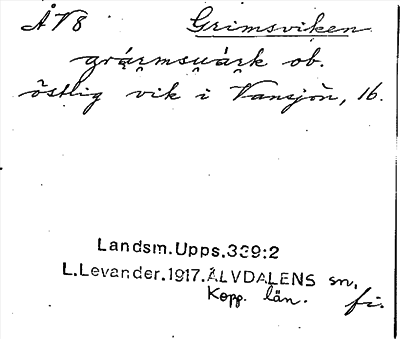 ÅV8 Grimsviken
grármsuárk ob.
östlig vik i Vansjön, 16.
Landsm.Upps.339:2
L.Levander.1917.ÄLVDALENS sn.
Kopp. län. fi.